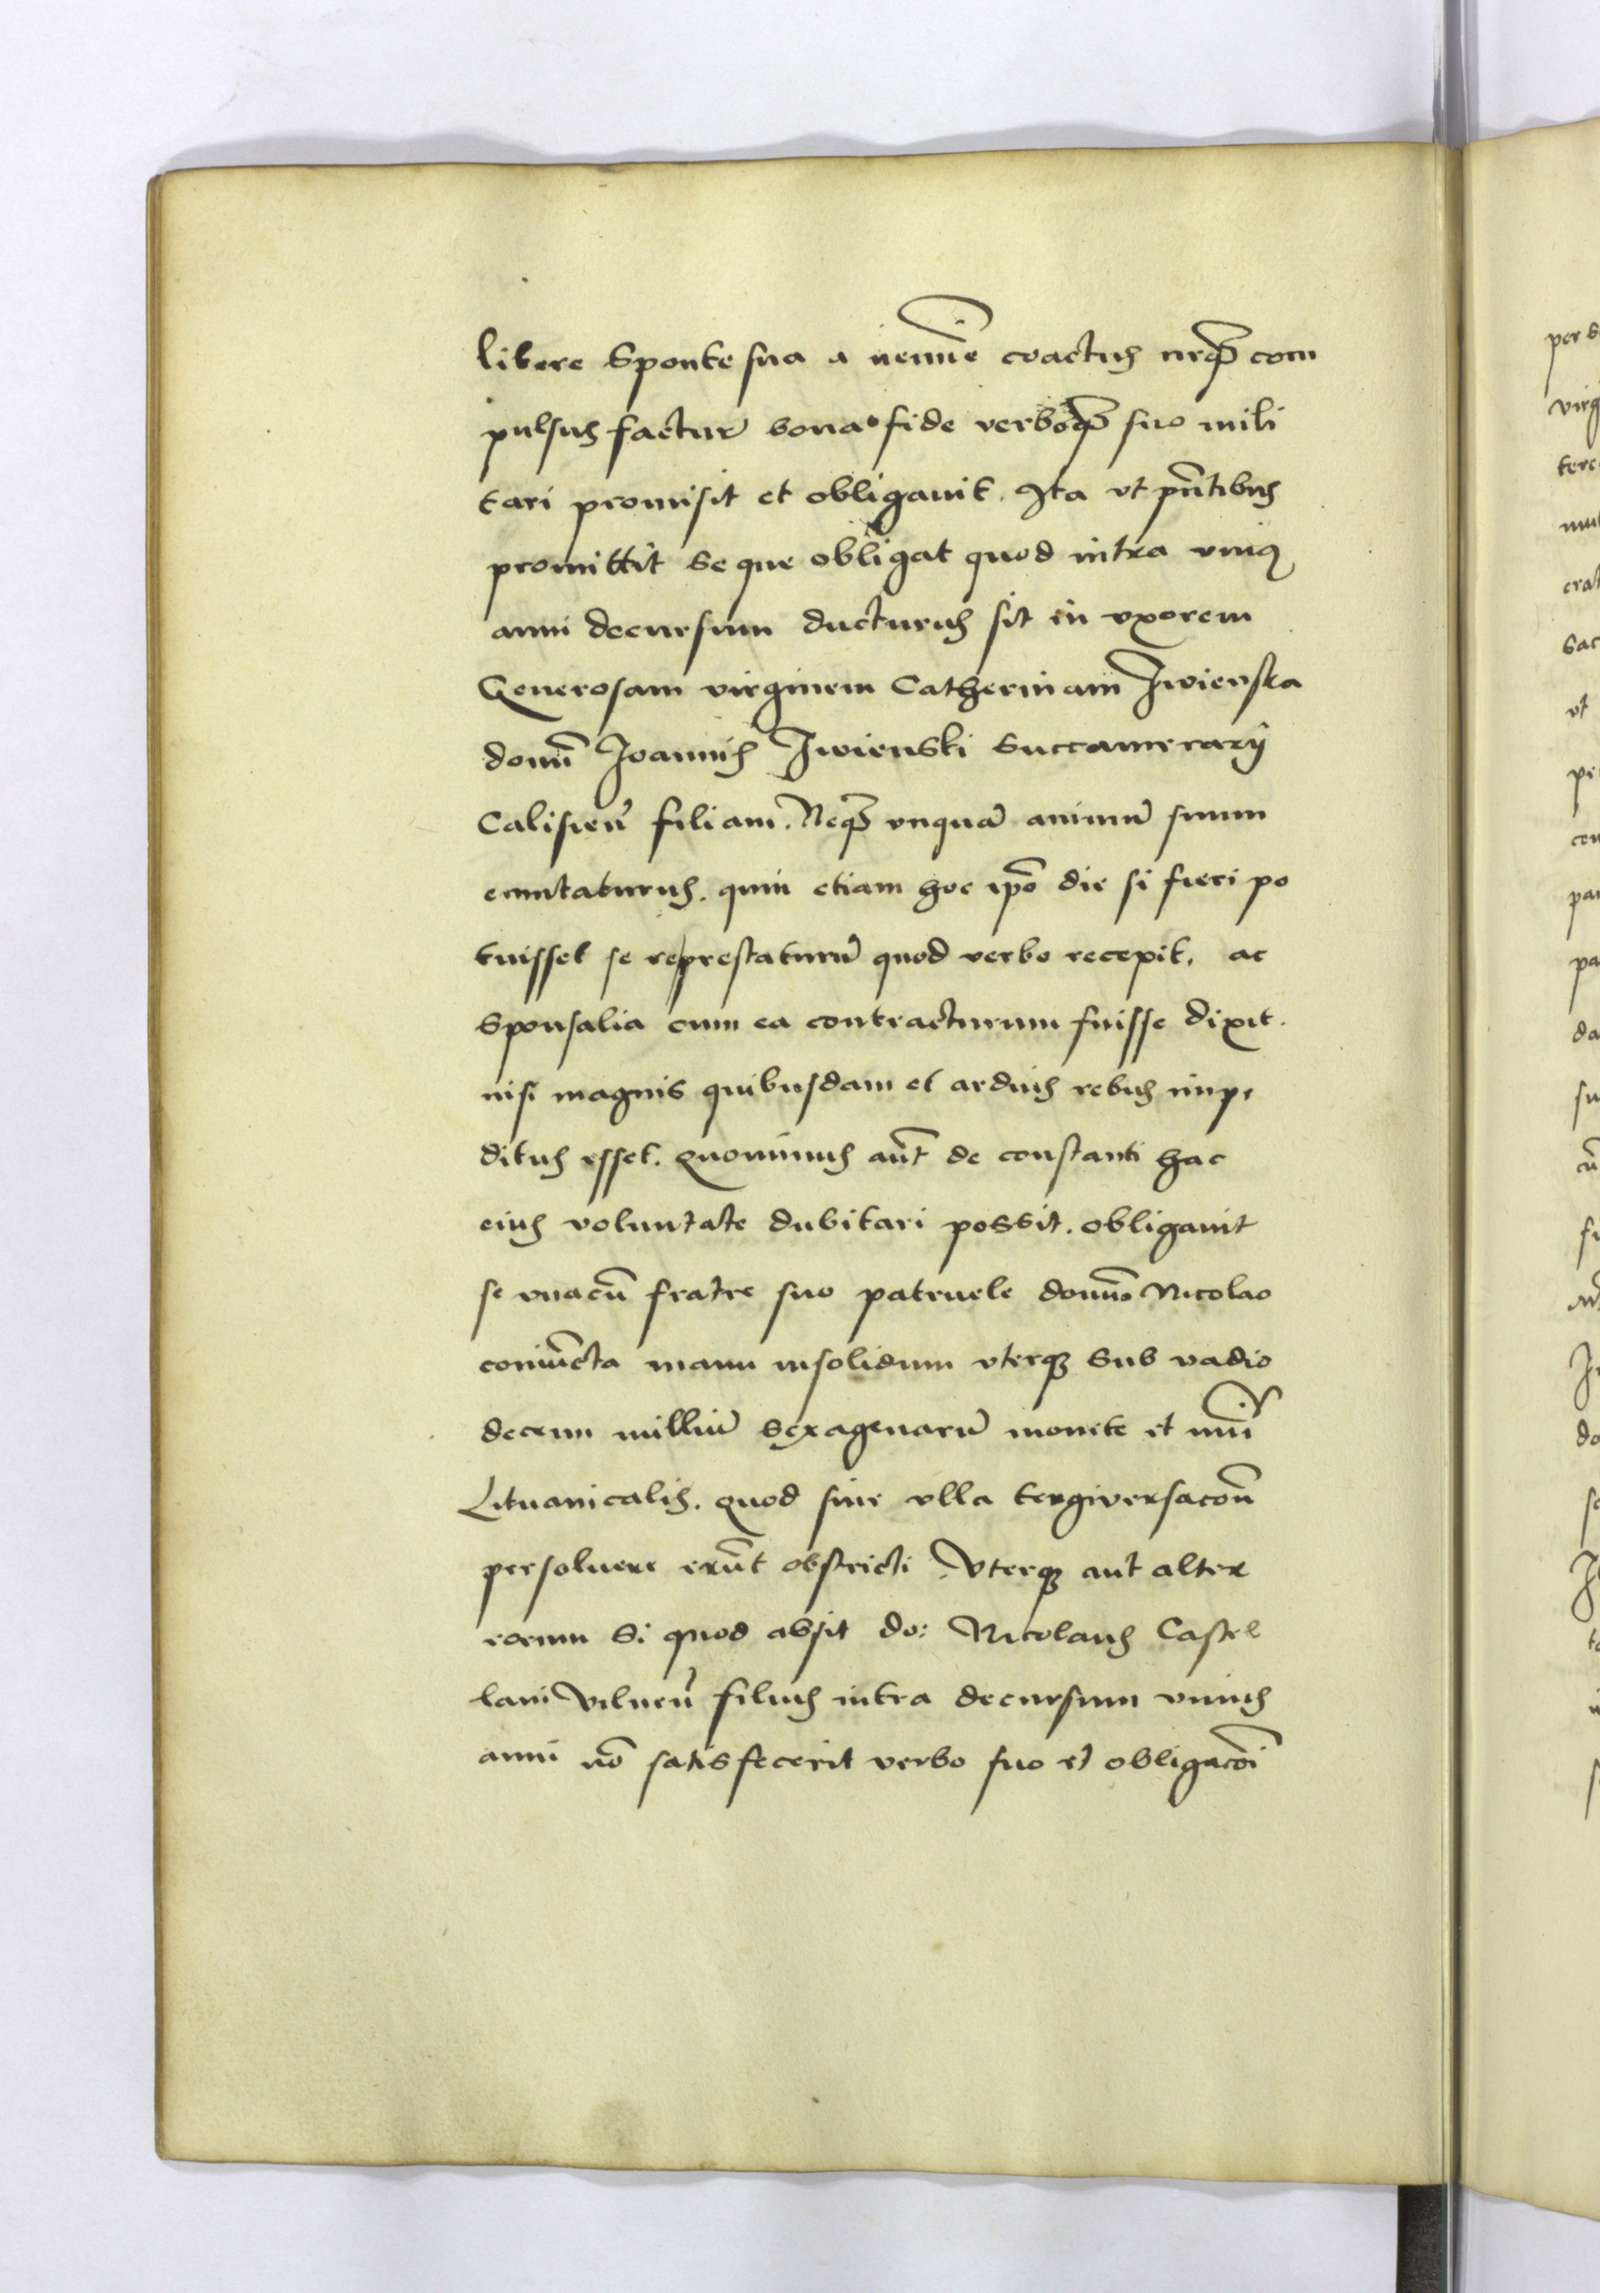 libere sponte sua a nemīe coactus neqȝ com
pulsus factur̄ bona fide verboqȝ suo mili
tari promisit et obligauit. Ita vt pn̄tibus
promittit se que obligat quod intra vniꝯ
anni decursum ducturus sit in vxorem
Generosam virginem Catherinam Iwienska
domī Ioannis Iwienski succamerarij
Calisien̄ filiam. Neqȝ vnquā animū suum
emutaturus. quin etiam hoc ip̄o die si fieri po
tuisset se represtaturū quod verbo recepit, ac
sponsalia cum ea contracturum fuisse dixit.
nisi magnis quibusdam et arduis rebus impe
ditus esset. quominus aūt de constanti hac
eius voluntate dubitari possit. obligauit
se vnacū fratre suo patruele domīo Nicolao
coniūcta manu insolidum vterqȝ sub vadio
decem milliū sexagenarū monete et nūī
Lituanicalis. quod sine vlla tergiversacōn
persoluere erūt obstricti. Vterqȝ aut alter
eorum si quod absit do: Nicolaus Castel
lani Vilnen̄ filius intra decursum vnius
anni nō satisfecerit verbo suo et obligacōi
per s
virg
terc
mu
crat
sac
vt
pe
con
par
pa
da
su
cū
do